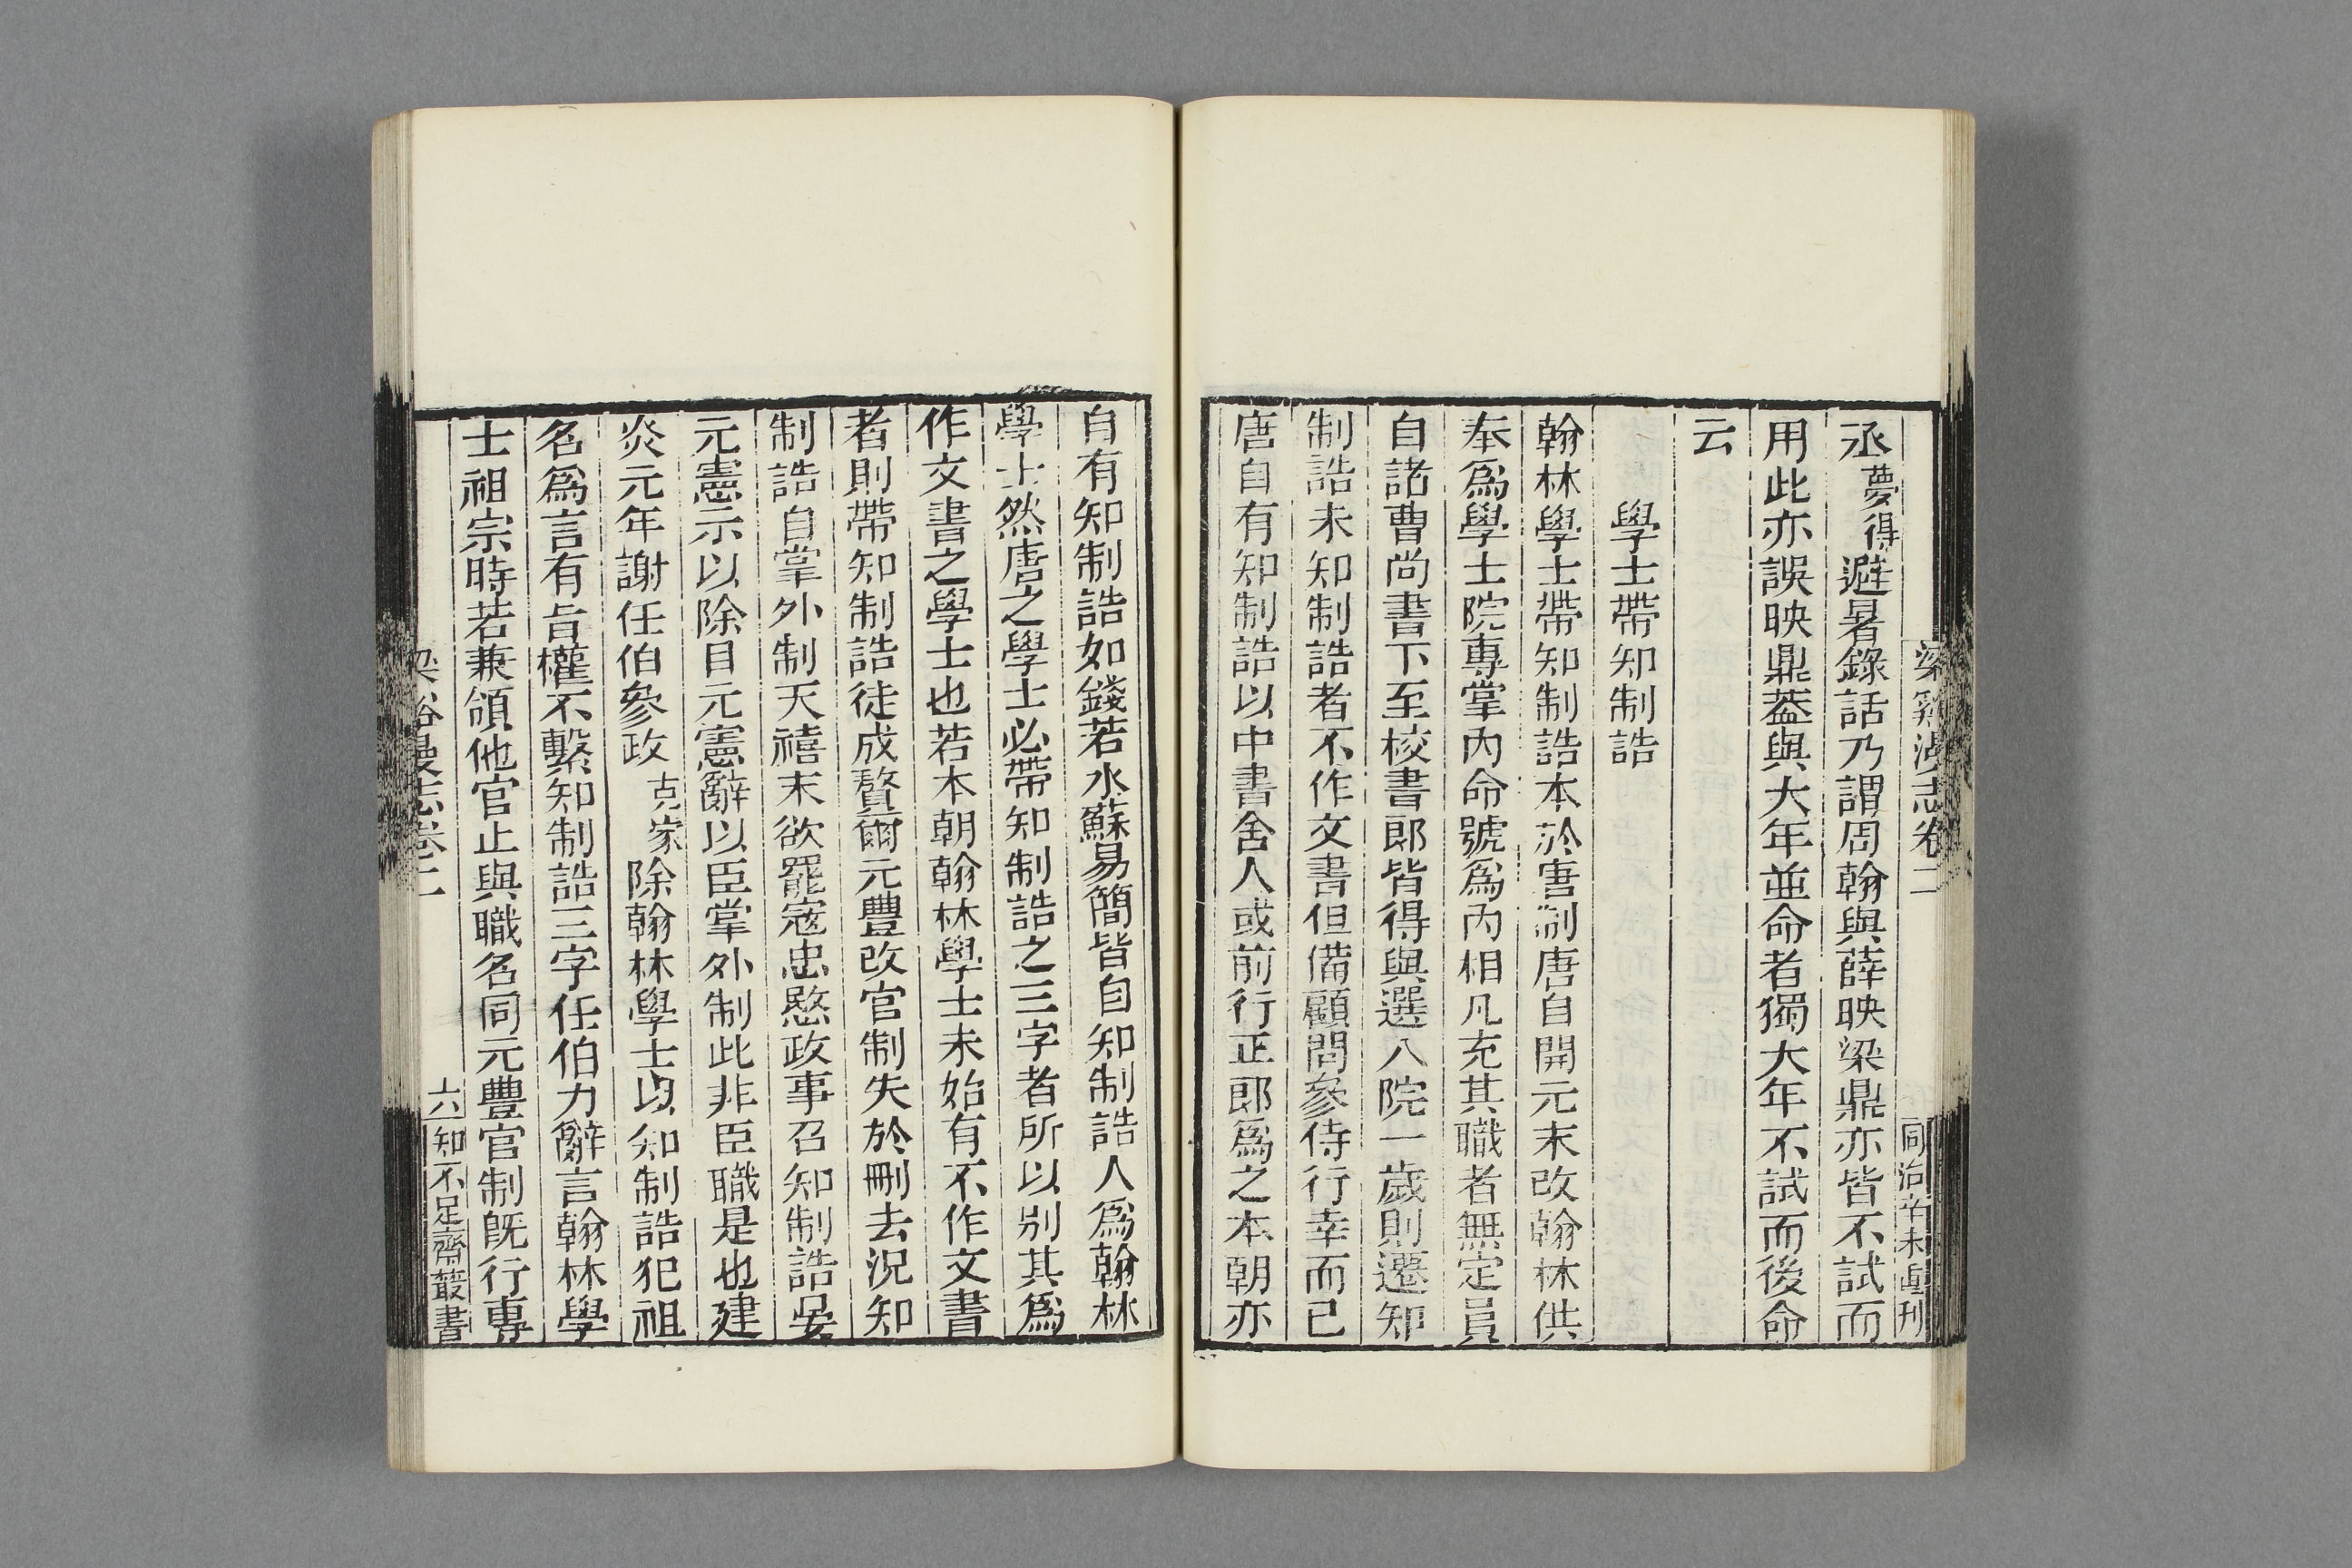 梁谿漫志卷二
同治辛未重刊
丞夢得避暑錄話乃謂周翰與薛映梁鼎亦皆不試而
用此亦誤映鼎葢與大年並命者獨大年不試而後命
云
學士帶知制誥
翰林學士帶知制誥本於唐制唐自開元末改翰林供
奉爲學士院專掌內命號爲內相凡充其職者無定員
自諸曹尚書下至校書郎皆得與選入院一歲則遷知
制誥未知制誥者不作文書但備顧問參侍行幸而已
唐自有知制誥以中書舍人或前行正郎爲之本朝亦
自有知制誥如錢若水蘇易簡皆自知制誥人爲翰林
學士然唐之學士必帶知制誥之三字者所以別其爲
作文書之學士也若本朝翰林學士未始有不作文書
者則帶知制誥徒成贅爾元豐改官制失於刪去況知
制誥自掌外制天禧末欲罷寇忠愍政事召知制誥晏
元憲示以除目元憲辭以臣掌外制此非臣職是也建
炎元年謝任伯參政克家除翰林學士以知制誥犯祖
名爲言有旨權不繫知制誥三字任伯力辭言翰林學
士祖宗時若兼領他官止與職名同元豐官制旣行專
梁谿漫志卷二
六
知不足齋叢書